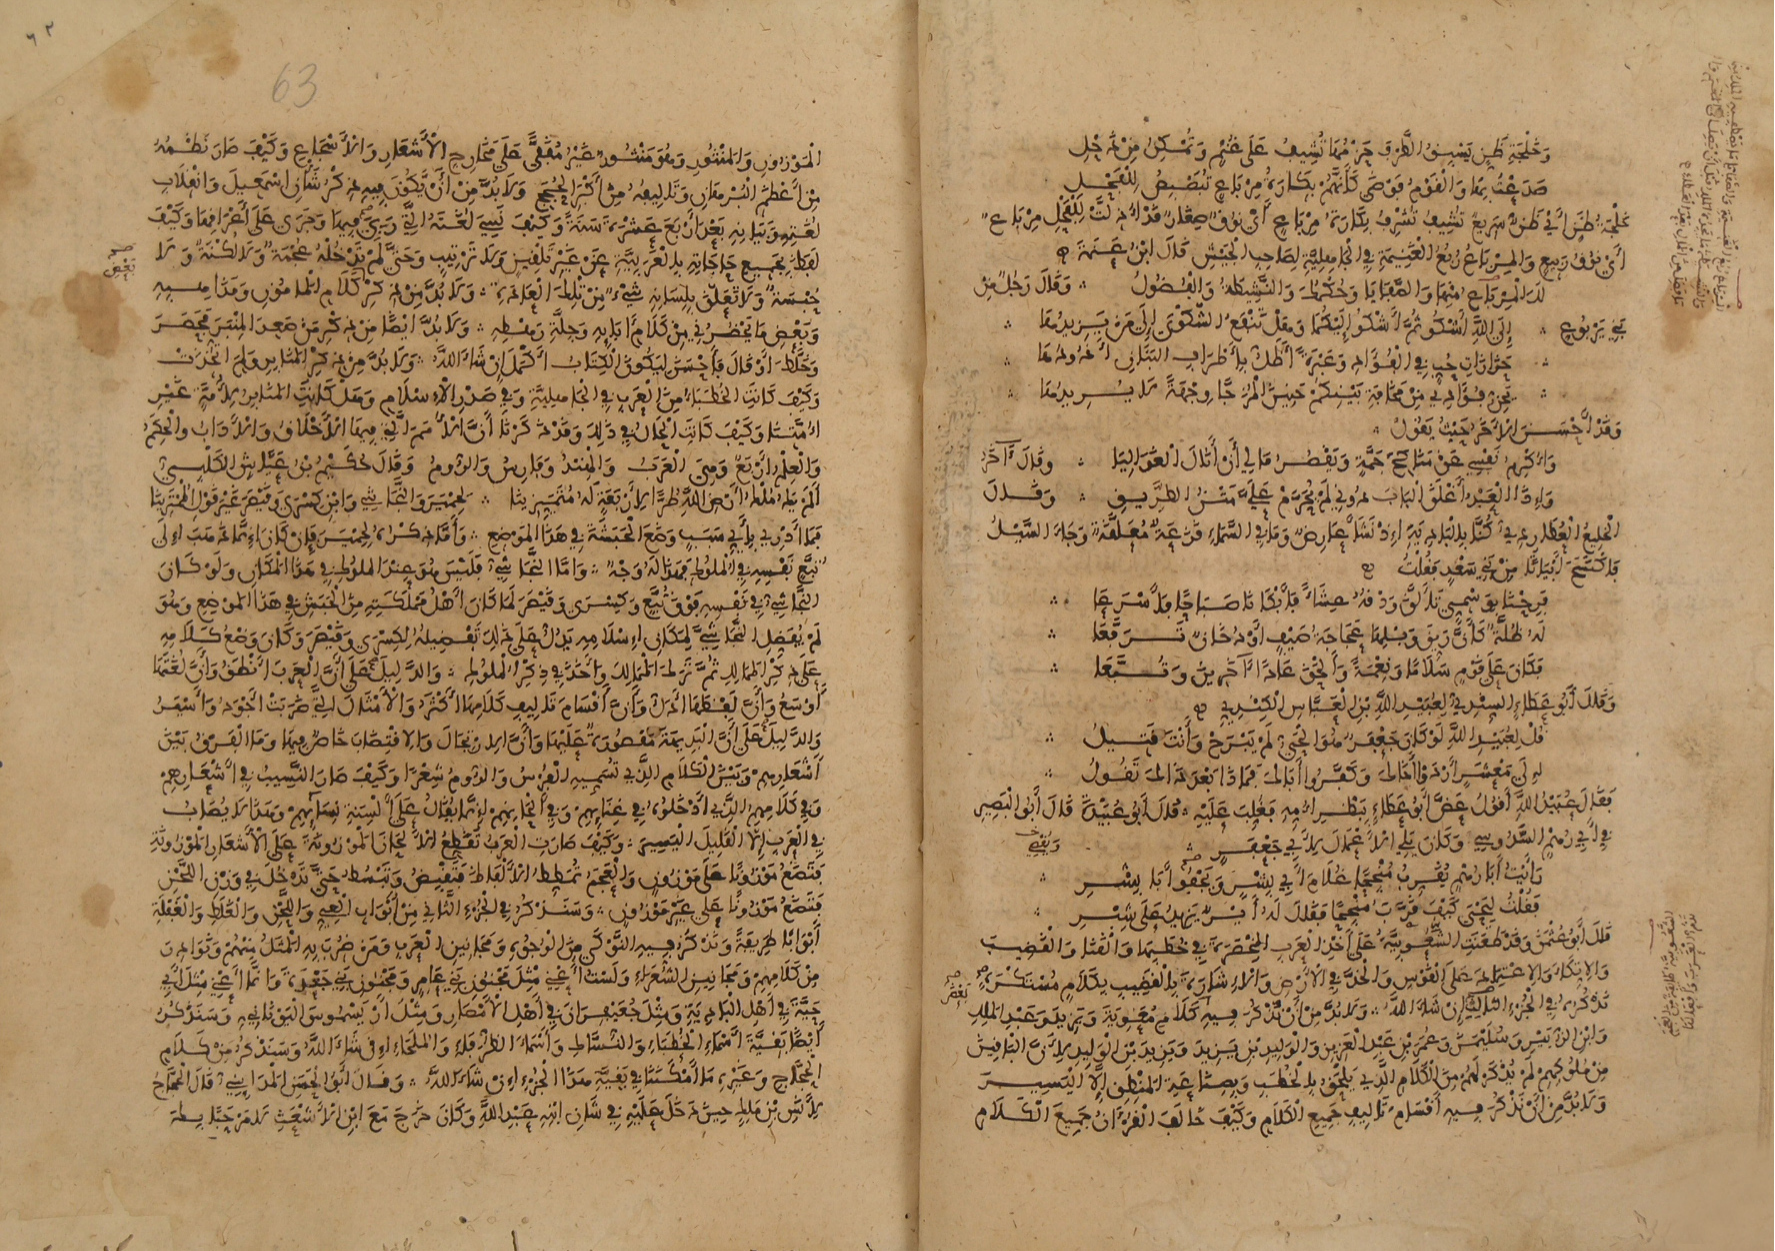 وَخُلْجَةِ ظَنٍّ يَسْبِقُ الطَّرْفَ حَزْمُهَا تُشِيفُ عَلَى غُنْمٍ وَتُمْكِنُ مِنْ ذَحْلِ
صَدَعْتُ بِهَا وَالْقَوْمُ فَوْضَى كَأَنَّهُمْ بِكَارَةُ مِرْبَاعٍ تُبَصْبِصُ لِلْفَحْلِ
خلجة ظن أي ظن سريع تشيف تشرف بكارة مرباع أي نوق صغار قد أذلت للفحل مرباع
أي نوق ربيع والمرباع ربع الغنيمة في الجاهلية لصاحب الجيش قال ابن عنمة
لك المرباع منها والصفايا وحكمك والنشيطة والفضول وقال رجل من
بني يربوع إلى الله أشكو ثم أشكو إليكما وهل تنفع الشكوى إلى من يزيدها
حزازات حب في الفؤاد وعبرة أظل بأطراف البنان أذودها
يحن فؤادي من مخافة بينكم حنين المزجّا وجهة لا يريدها
وقد أحسن الآخر حيث يقول
وأكرم نفسي عن مناكح جمة ويقصر مالي أن أنال الغواليا وقال آخر
وإذا العبد أغلق الباب دوني لم يحرم علي متن الطريق وقال
الخليع العطاردي كنا بالبادية إذ نشأ عارض وما في السماء قزعة معلقة وجاء السيل
فاكتسح أبياتا من بني سعد فقلت
فرحنا بوسمي تألق ودقه عشاء فأبكانا صباحا فأسرعا
له ظلة كأن ريق وبلها عجاجة صيف أو دخان ترفعا
فكان على قوم سلاما ونعمة وألحق عادا آخرين وتبعا
وقال أبو عطاء السندي لعبيد الله بن العباس الكندي
قل لعبيد الله لو كان جعفر هو الحي لم يبرح وأنت قتيل
إلى معشر أردوا أخاك وكفروا أباك فماذا بعد ذاك تقول
فقال عبيد الله أقول عض أبو عطاء ببظر أمه فغلب عليه قال أبو عبيدة قال أبو البصير
في أبي رهم السدوسي وكان يلي الأعمال لأبي جعفر
رأيت أبا رهم يقرب منجحا غلام أبي بشر ويجفو أبا بشر
فقلت ليحيى كيف قرب منجحا فقال له أير يزيد على شبر
قال أبو عثمن وقد طعنت الشعوبية على أخذ العرب المخصرة في خطبها والقنا والقضيب
والاتكاء والاعتماد على القوس والخد في الأرض والإشارة بالقضيب بكلام مستكره
نذكره في الجزء الثالث إن شاء الله ولا بد من أن نذكر فيه كلام معوية ويزيد وعبد الملك
وابن الزبير وسليمن وعمر بن عبد العزيز والوليد بن يزيد ويزيد بن الوليد لأن الباقين
من ملوكهم لم يذكر لهم من الكلام الذي يلحق بالخطب وبصناعة المنطق إلا اليسير
ولا بد من أن نذكر فيه أقسام تأليف جميع الكلام وكيف خالف القرءان جميع الكلام
63
الموزون والمنثور وهو منثور غير مقفى على مخارج الأشعار والأسجاع وكيف صار نظمه
من أعظم البرهان وتأليفه من أكبر الحجج ولا بد من أن يكون فيه ذكر شأن إسمعيل وانقلاب
لغته وبيانه بعد أربع عشرة سنة وكيف نسي لغته التي ربي فيها وجرى على أعراقها وكيف
لفظ بجميع حاجاته بالعربية عن غير تلقين ولا ترتيب وحتى لم تدخله عجمة ولا لكنة ولا
حبسة ولا تعلق بلسانه شيء من تلك العادة ولا بد من ذكر كلام المامون ومذاهبه
وبعض ما يحضرني من كلام أبايه وجلة رهطه ولا بد أيضا من ذكر من صعد المنبر فحصر
وخلط أو قال فأحسن ليكون الكتاب أكمل إن شاء الله ولا بد من ذكر المنابر ولم اتخذت
وكيف كانت الخطباء من العرب في الجاهلية وفي صدر الإسلام وهل كانت المنابر لأمة غير
أمتنا وكيف كانت الحال في ذلك وقد ذكرنا أن الأمم التي فيها الأخلاق والآداب والحكم
والعلم أربع وهي العرب والهند وفارس والروم وقال حكيم بن عياش الكلبي
ألم يك ملك أرض الله طرا لأربعة له متميزينا لحمير والنجاشي وابن كسرى وقيصر غير قول الممترينا
فما أدري بأي سبب وضع الحبشة في هذا الموضع وأما ذكره لحمير فإن كان إنما ذهب إلى
تبع نفسه في الملوك فهذا له وجه وأما النجاشي فليس هو عند الملوك في هذا المكان ولو كان
النجاشي في نفسه فوق تبع وكسرى وقيصر لما كان أهل مملكته من الحبش في هذا الموضع وهو
لم يفضل النجاشي لمكان إسلامه يدل على ذلك تفضيله لكسرى وقيصر وكان وضع كلامه
على ذكر الممالك ثم ترك الممالك وأخذ في ذكر الملوك والدليل على أن العرب أنطق وأن لغتها
أوسع وأن لفظها أدل وأن أقسام تأليف كلامها أكثر والأمثال التي ضربت أجود وأسير
والدليل على أن البديهة مقصورة عليها وأن الارتجال والاقتضاب خاص فيها وما الفرق بين
أشعارهم وبين الكلام الذي تسميه الفرس والروم شعرا وكيف صار النسيب في أشعارهم
وفي كلامهم الذي أدخلوه في غنايهم وفي ألحانهم إنما يقال على ألسنة نسايهم وهذا لا يصاب
في العرب إلا القليل اليسير وكيف صارت العرب تقطع الألحان الموزونة على الأشعار الموزونة
فتضع موزونا على موزون والعجم تمطط الألفاظ فتقبض وتبسط حتى تدخل في وزن اللحن
فتضع موزونا على غير موزون وسنذكر في الجزء الثاني من أبواب العي واللحن والغلط والغفلة
أبوابا طريفة ونذكر فيه النوكى من الوجوه ومجانين العرب ومن ضرب به المثل منهم ونوادر
من كلامهم ومجانين الشعراء ولست أعني مثل مجنون بني عامر ومجنون بني جعدة وإنما أعني مثل أبي
حية في أهل البادية ومثل جعيفران في أهل الأمصار ومثل أريسموس اليوناني وسنذكر
أيضا بقية أسماء الخطباء والنساك وأسماء الظرفاء والملحاء إن شاء الله وسنذكر من كلام
الحجاج وغيره ما أمكننا في بقية هذا الجزء إن شاء الله وقال أبو الحسن المدايني قال الحجاج
لأنس بن ملك حين دخل عليه في شان ابنه عبد الله وكان خرج مع ابن الأشعث لا مرحبا بك